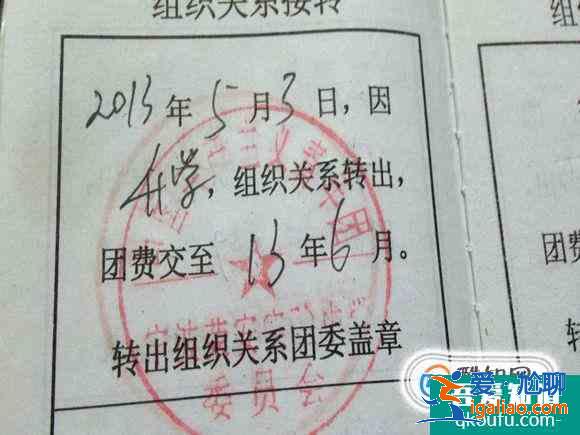 组织关系接转
组
2013年5月3日,因
升学,组织关系转出,
团费交至13年6月。
团费
转出组织关系团委盖章
转
委员会
酷知网
爱尬聊
igaliao.com
qk5ufu.com